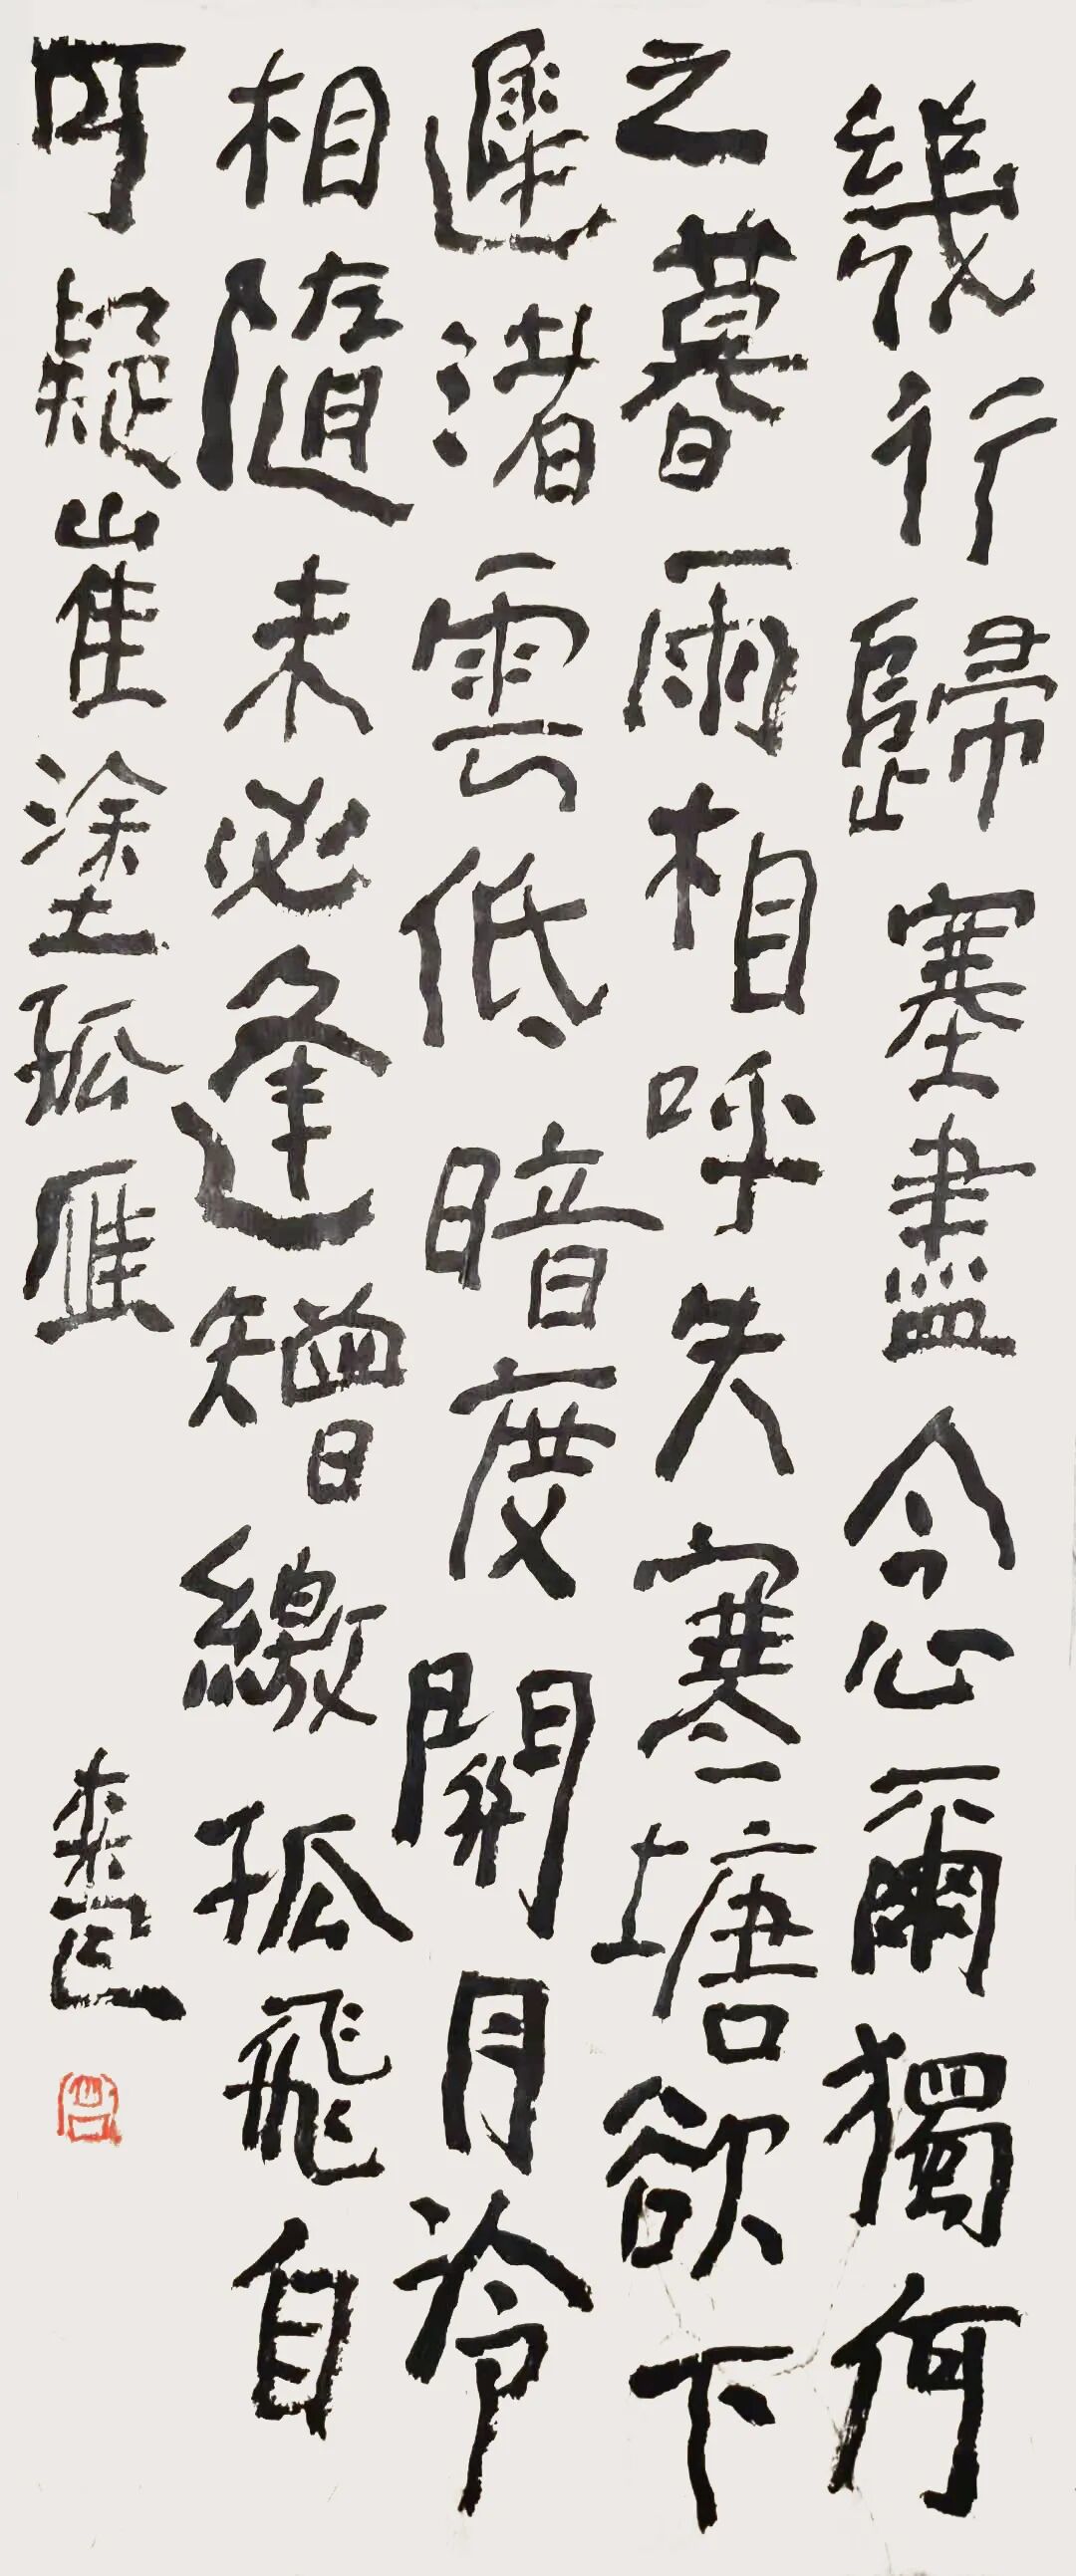 幾行歸塞盡念爾獨何
之暮雨相呼失寒塘欲下
遲渚雲低暗度關月冷
相隨未必逢矰繳孤飛自
可疑崔塗孤雁